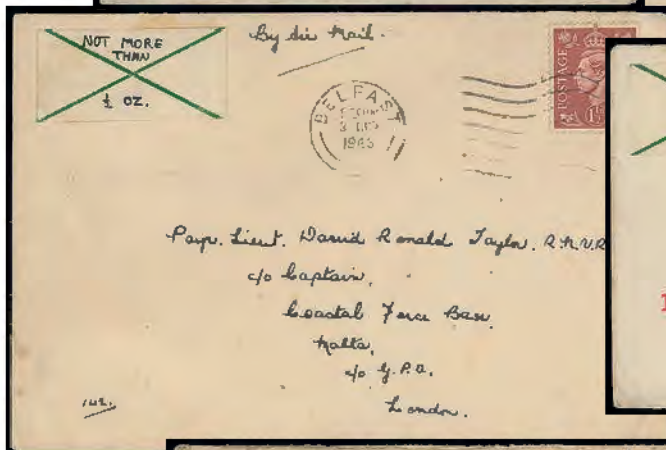 NOT MORE
THAN
½ oz.
By Air Mail.
BELFAST
1943
POSTAGE
Payr. Lieut. David Ronald Taylor. R.N.V.R
c/o Captain,
Coastal Force Base
Malta,
c/o G.P.O.
London.